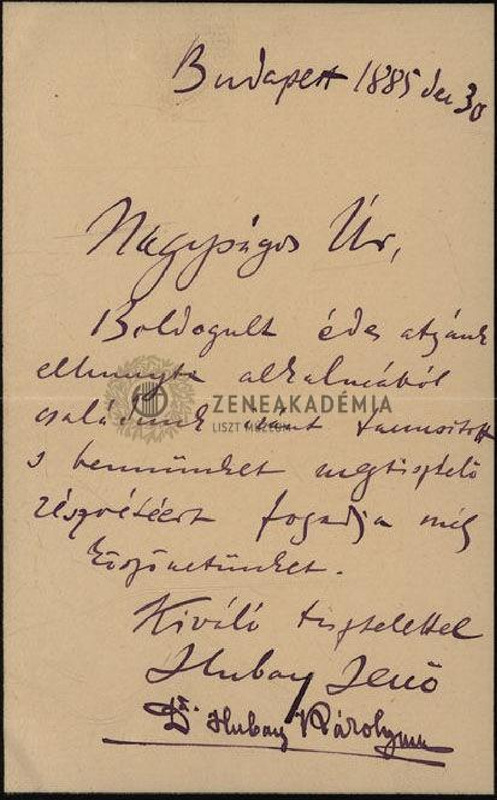 Budapest 1885 dec 30
Nagyságos Úr,
Boldogult édes atyánk
elhunyta alkalmából
családunk iránt tanusított
s bennünket megtisztelő
részvétéért fogadja mély
köszönetünket.
Kiváló tisztelettel
Hubay Jenő
Dr. Hubay Károlyné
ZENEAKADÉMIA
LISZT MÚZEUM